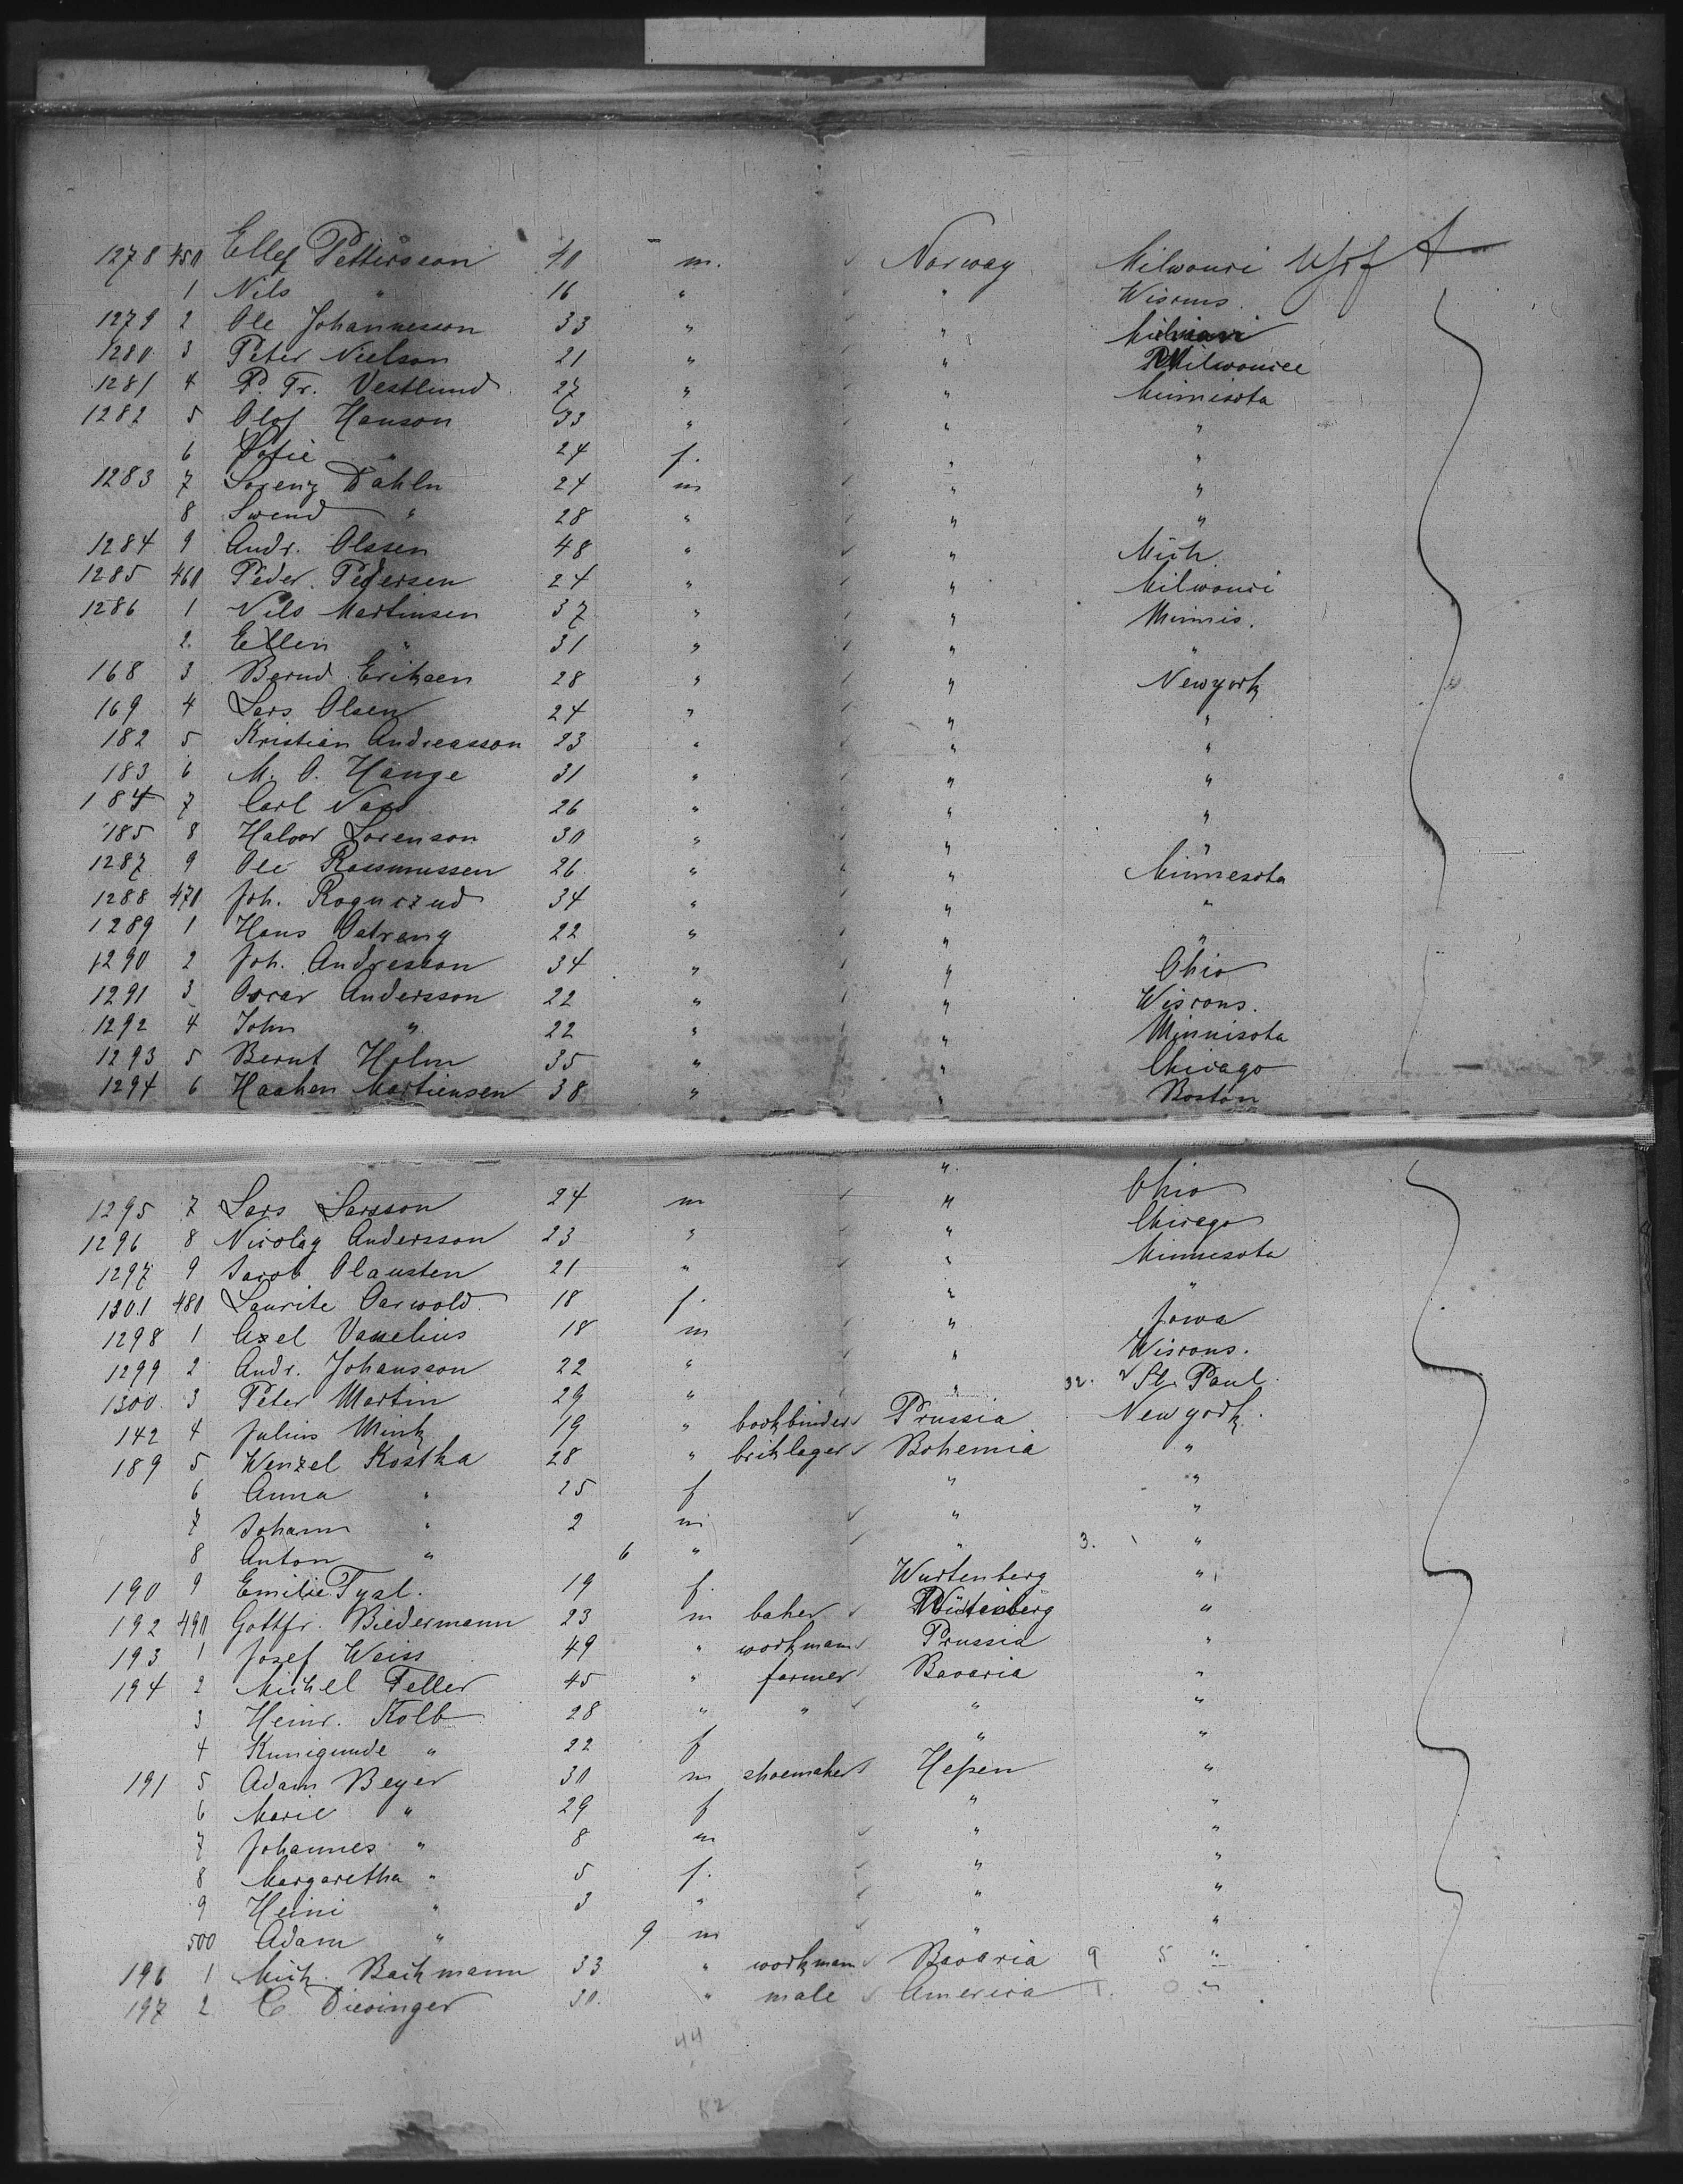 1278 450 Ellef Pettersson 40 m. Norway Milwouri
1 Nils " 16 " " Wiscons.
1279 2 Ole Johannesson 33 " "
1280 3 Peter Nielson 21 " " Milwouree
1281 4 P. Fr. Vestlund 27 " " Minnisota
1282 5 Olof Hanson 33 " " "
6 Sofie " 24 f. " "
1283 7 Lorenz Dahln 24 m " "
8 Swend " 28 " " "
1284 9 Andr. Olssen 48 " " Mich.
1285 460 Peder Pedersen 24 " " Milwouri
1286 1 Nils Martinsen 37 " " Minnis.
2 Ellen " 31 " " "
168 3 Bernd Eriksen 28 " " Newyork
169 4 Lars Olsen 24 " " "
182 5 Kristian Andreasson 23 " " "
183 6 M. O. Hange 31 " " "
184 7 Carl 26 " " "
185 8 Halvor Sorenson 30 " " "
1287 9 Ole Rassmussen 26 " " Minnesota
1288 470 Joh. 34 " " "
1289 1 Hans 22 " " "
1290 2 Joh. Andresson 34 " " Ohio
1291 3 Oscar Andersson 22 " " Wiscons.
1292 4 John " 22 " " Minnisota
1293 5 Bernt Holm 35 " " Chicago
1294 6 Haaken Martiensen 38 " " Boston
1295 7 Lars Larsson 24 m " Ohio
1296 8 Nicolay Andersson 23 " " Chicago
1297 9 Jacob Olausten 21 " " Minnesota
1301 480 Laurite Oarwold 18 f. " "
1298 1 Axel Vanelius 18 m " Jowa
1299 2 Andr. Johansson 22 " " Wiscons.
1300 3 Peter Martin 29 " " 32. St. Paul.
142 4 Julius Mink 19 " bookbinder Prussia New york.
189 5 Wenzel Kostka 28 " briklager Bohemia "
6 Anna " 25 f " "
7 Johann " 2 m " "
8 Anton " 6 " " 3. "
190 9 Emilie Tyzl. 19 f. Wurtenberg "
192 490 Gottfr. Biedermann 23 m baker Würtenberg "
193 1 Josef Weiss 49 " workmann Prussia "
194 2 Michel Feller 45 " farmer Bavaria "
3 Heinr. Kolb 28 " " " "
4 Kunigunde " 22 f " "
191 5 Adam Beyer 30 m shoemaker Heßen "
6 Marie " 29 f " "
7 Johannes " 8 m " "
8 Margaretha " 5 f. " "
9 Heini " 3 " " "
500 Adam " 9 m " "
196 1 Mich. Bachmann 33 " workmann Bavaria 9 5 "
197 2 C. Diesinger 30. " male America 1. 0 "
44
82